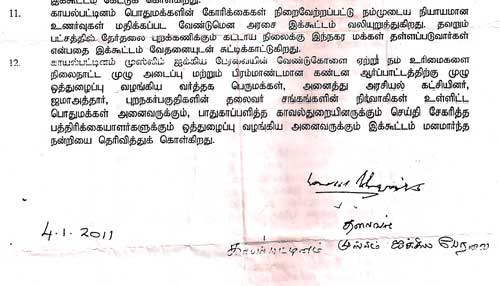 11. காயல்பட்டினம் பொதுமக்களின் கோரிக்கைகள் நிறைவேற்றப்பட்டு நம்முடைய நியாயமான
உணர்வுகள் மதிக்கப்பட வேண்டுமென அரசை இக்கூட்டம் வலியுறுத்துகிறது. தவறும்
பட்சத்தில் தேர்தலை புறக்கணிக்கும் கட்டாய நிலைக்கு இந்நகர மக்கள் தள்ளப்படுவார்கள்
என்பதை இக்கூட்டம் வேதனையுடன் சுட்டிக்காட்டுகிறது.
12. காயல்பட்டினம் முஸ்லிம் ஐக்கிய பேரவையின் வேண்டுகோளை ஏற்று நம் உரிமைகளை
நிலைநாட்ட முழு அடைப்பு மற்றும் பிரம்மாண்டமான கண்டன ஆர்ப்பாட்டத்திற்கு முழு
ஒத்துழைப்பு வழங்கிய வர்த்தக பெருமக்கள், அனைத்து அரசியல் கட்சியினர்,
ஜமாஅத்தார், புறநகர்பகுதிகளின் தலைவர் சங்கங்களின் நிர்வாகிகள் உள்ளிட்ட
பொதுமக்கள் அனைவருக்கும், பாதுகாப்பளித்த காவல்துறையினருக்கும் செய்தி சேகரித்த
பத்திரிக்கையாளர்களுக்கும் ஒத்துழைப்பு வழங்கிய அனைவருக்கும் இக்கூட்டம் மனமார்ந்த
நன்றியை தெரிவித்துக் கொள்கிறது.
4.1.2011
தலைவர்
காயல்பட்டினம் முஸ்லிம் ஐக்கிய பேரவை